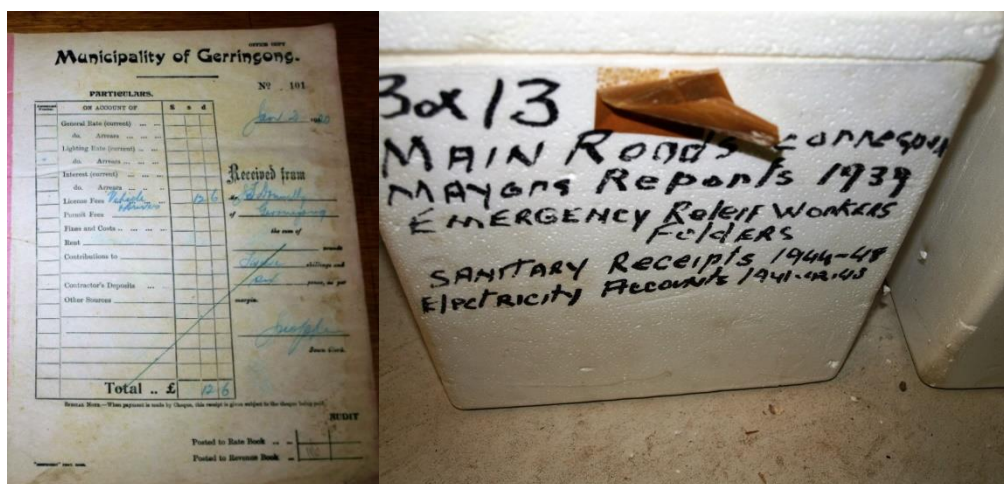 OFFICE COPY
Municipality of Gerringong.
No. 101
PARTICULARS.
ON ACCOUNT OF £ s d
Jan 2
General Rate (current) ... ...
do. Arrears ... ... ...
Lighting Rate (current) ...
do. Arrears ... ...
Interest (current) ... ...
do. Arrears ... ...
License Fees Vehicle 12 6
Permit Fees
Fines and Costs .. ... ... ...
Rent
Contributions to
Contractor's Deposits ...
Other Sources
Received from
of Gerringong
the sum of
pounds
Twelve shillings and
six pence, as per
margin.
Town Clerk.
Total .. £ 12 6
SPECIAL NOTE.—When payment is made by Cheque, this receipt is given subject to the cheque being paid.
AUDIT
Posted to Rate Book .. ..
Posted to Revenue Book ..
Box 13
MAIN Roads
MAYORS Reports 1939
EMERGENCY Releif WORKERS
FOLDERS
SANITARY Receipts 1944-48
ElEctRICITY Accounts 1941-42-43